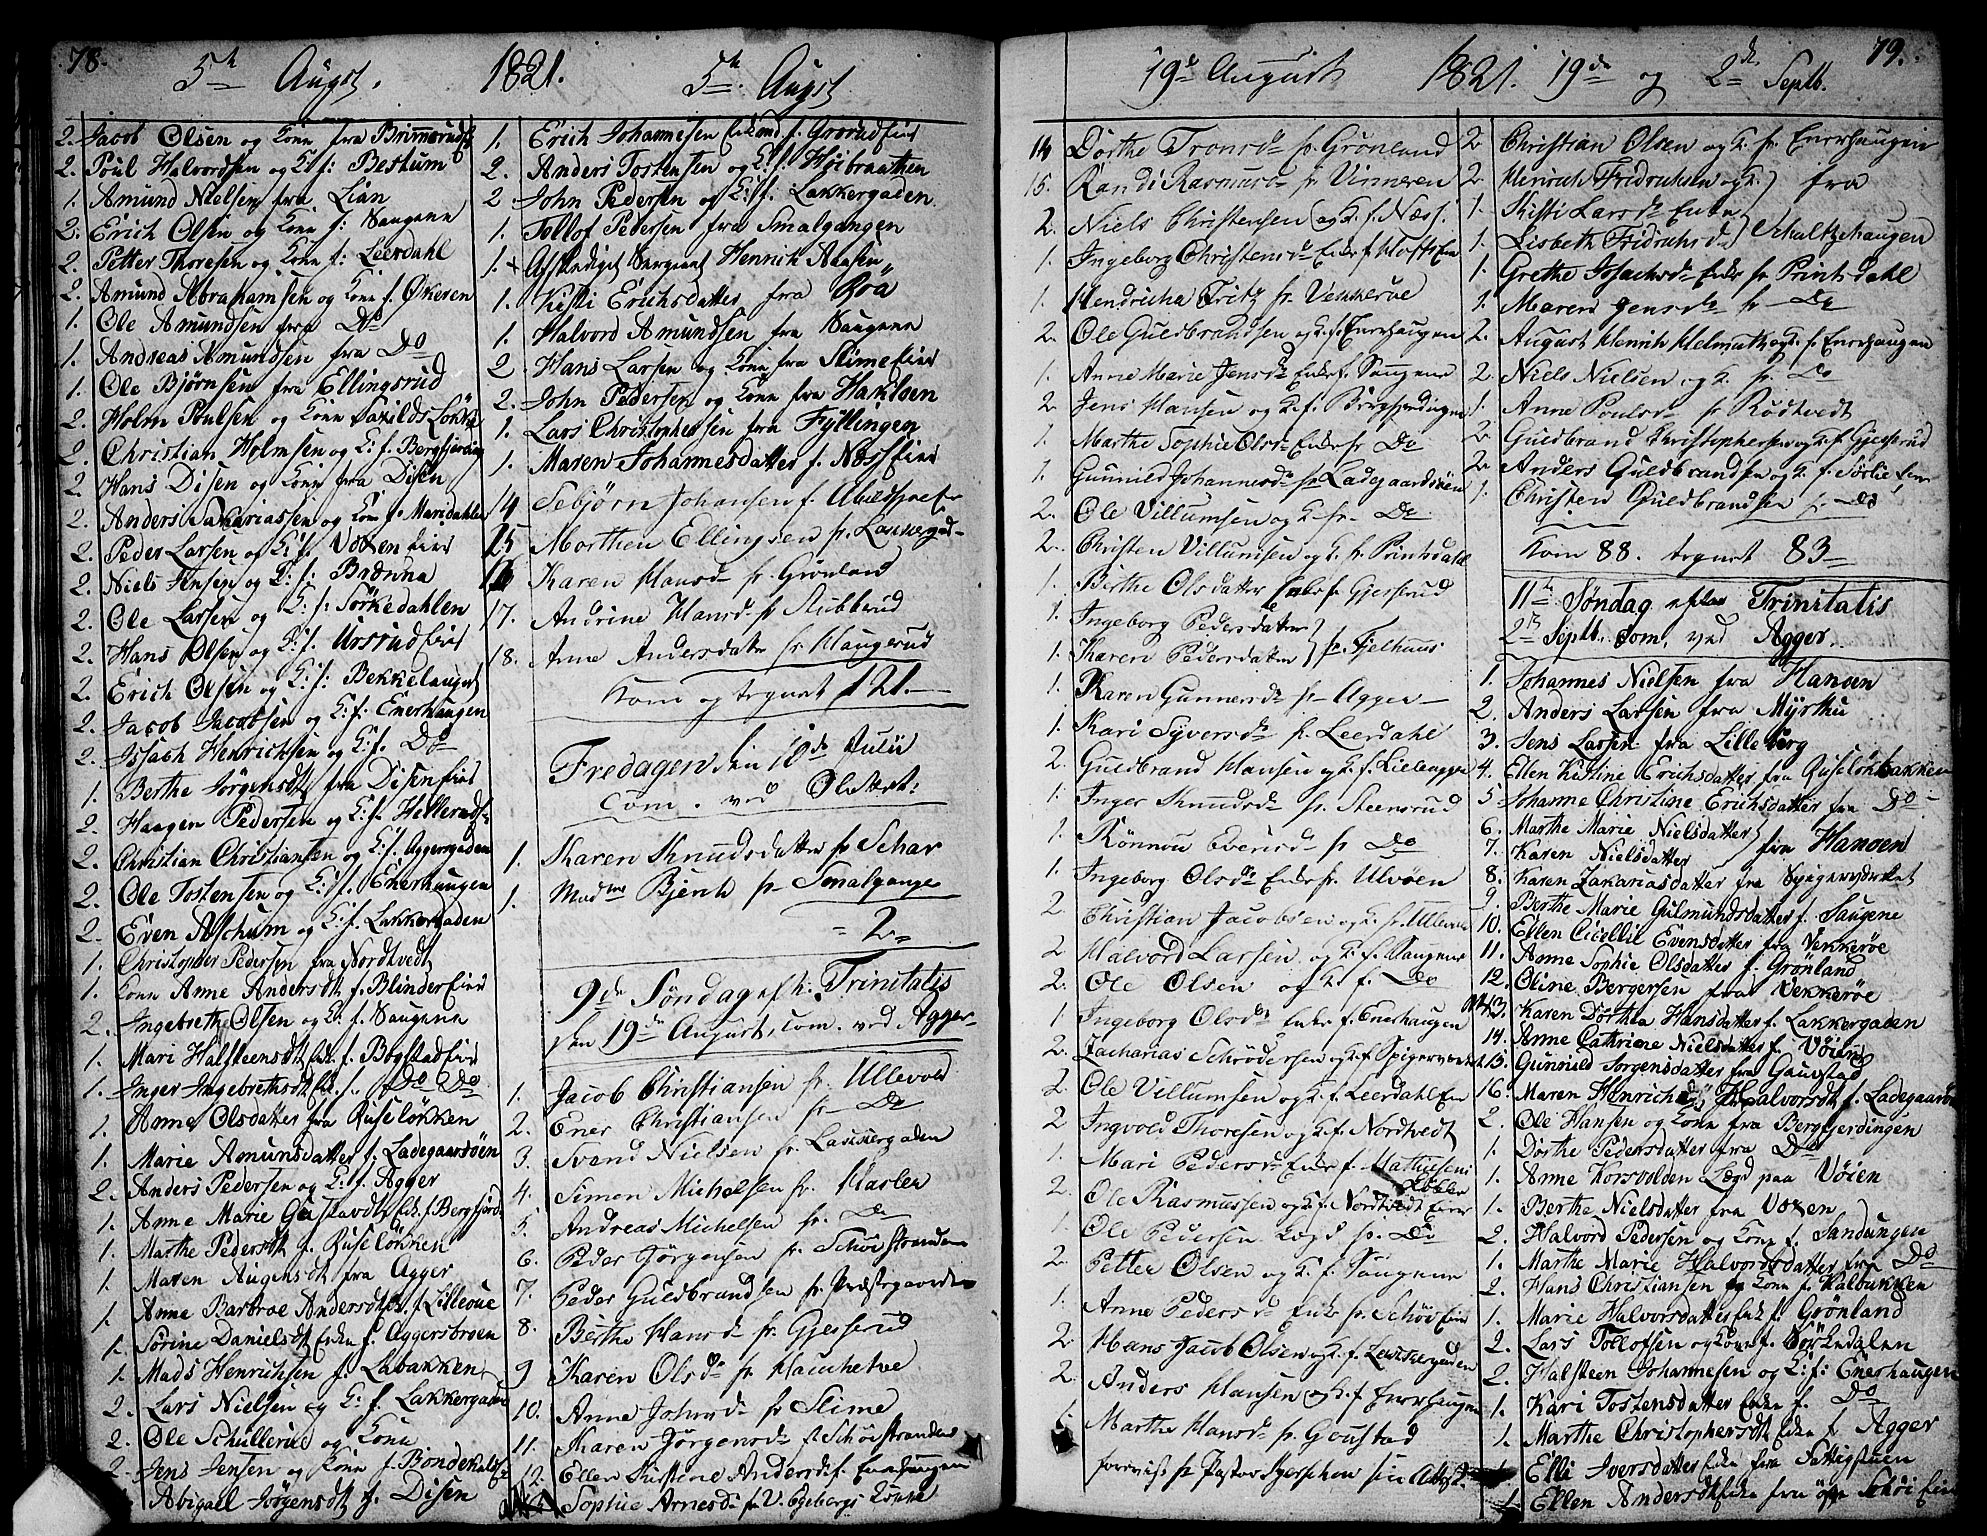 78.
5th Augst. 1821. 5th Augst
2. Jacob Olsen og Konn fra Brimerud
2. Poul Halvordsen og K: f: Bestum
1. Amund Nielsen fra Lian
2. Erich Olsen og Konn f: Saugene
2. Petter Thoresen og Konn f: Leerdahl
2. Amund Abrahamsen og Konn f. Økeren
1. Ole Amundsen fra Do
1. Andreas Amundsen fra Do
1. Ole Bjørnsen fra Ellingsrud
2. Holm Poulsen og Konn Saxilds Løkke
2. Christian Holmsen og K: f. Bergfjering
2. Hans Disen og Konn fra Disen
2. Anders Zakariassen og Kon f. Maridahlen
2. Peder Larsen og K: f. Voxen Eiet
2. Niels Jensen og K: f: Brønna
2. Ole Larsen og K: f: Sørkedahlen
2. Hans Olsen og K: f. Ursrud Eiet
2. Erich Olsen og K: f: Bekkelauget
2. Jacob Jacobsen og K: f: Enerhaugen
2. Issach Henrichsen og K: f. Do
1. Berthe Jørgensdt fra Disen Eiet
2. Haagen Pedersen og K: f. Hellerud
2. Christian Christiansen og K: f. Aggersgaden
2. Ole Tostensen og K: f. Enerhaugen
2. Even Aschum og K: f. Lakkergaden
1. Christopher Pedersen fra Nordtvedt
1. Konn Anne Andersdt f. Blinder Eiet
2. Ingebreth Olsen og K: f. Saugene
1. Mari Halsteensdt Enk. f. Bogstad Eiet
1. Inger Ingebrethsdt Ek. f. Do Do
1. Anne Olsdatter fra Ruseløkken
1. Marie Amunsdatter f. Ladegaarsøen
2. Anders Pedersen og K: f. Agger
1. Anne Marie Gustavsdt Enk. f. Bergfjerd.
1. Marthe Pedersdt f. Ruseløkken
1. Maren Augensdt fra Agger
1. Anne Barbroe Andersdt Ek. f. Lilleoue
1. Sørine Danielsdt Enke f. Aggersbroen
1. Mads Henrichsen f. Labakken
2. Lars Nielsen og K: f. Lakkergaden
2. Ole Schullerud og Konn
2. Jens Jensen og Konn f. Bondekalst
Abigael Jørgensdt f. Disen
1. Erich Johannesen Enkem. f. Grorud Eiet
2. Anders Tostensen og K: f. Høibraathen
2 John Pedersen og K: f. Lakkergaden
1. Tollof Pedersen fra Smalgangen
1. Afskediget Sargeant Henrich Aasen
1. Kisti Erichsdatter fra Roa
1. Halvord Amundsen fra Saugene
2. Hans Larsen og Konn fra Slime Eiet
2. John Pedersen og Konn fra Hakloen
1. Lars Christophersen fra Fyllingen
1. Maren Johannesdatter f. Næss Eiet
14 Sebjørn Johansen f. Abildsøe Er
15 Morthen Ellingsen fr. Lakkergad-
16 Karen Hansd fr. Grønland
17. Andrine Hansd fr Stubberud
18. Anne Andersdatr fr Haugerud
Kom og tegnet 121.
Fredagen den 10de Julii
com. ved Ol. Sket:
1. Karen Knudsdatter fr Schar
1. Madme Bjerch fr Smalgange
2
9de Søndag eft. Trinitatis
den 19de August, com. ved Agger
1. Jacob Christiansen fr. Ullevold
2. Ener Christiansen fr Do
3. Svend Nielsen fr. Lakkergaden
4. Simon Michelsen fr. Hasler
5. Andreas Michelsen fr. Do
6. Peder Jørgensen fr. Schøistranden
7. Peder Guldbrandsen fr Præstegaarden
8. Birthe Hansd fr. Gjesserud
9 Karen Olsd fr Hauchetve
10. Anne Johnsd fr Slime
11. Karen Jørgensd f. Schøistranden
12. Ellen Kirstene Andersd f. Enerhaugen
Sophie Arnesd fr V. Egebergs Løkke
79.
19de August 1821. 19de og 2de Septb.
14 Dorthe Tronsd fr Grønland
15. Randi Rasmusd fr Vinneren
2. Niels Christensen og K. f. Næss.
1. Ingeborg Christensd Enke f. Kloft Ein
1 Hendricha Fritz fr Vekkerøe
2. Ole Guldbrandsen og K. f. Enerhaugen
1. Anne Marie Jensd Enke f. Saugene
2. Jens Hansen og K. f. Bergfjerdingen
1. Marthe Sophie Olsd Enke fr Do
1. Gunnild Johannesd fr Ladegaardsøen
2. Ole Villumsen og K. fr. Do
2. Christen Villumsen og K. fr. Printsdahl
1. Birthe Olsdatter Enke fr Gjesserud
1. Ingeborg Pedersdatter
1. Karen Pedersdatter } fr. Fjelhuus
1. Karen Gunnersd fr Agger
1. Kari Syversd fr Leerdahl
2. Guldbrand Hansen og K. f. Lielengge
1. Inger Knudsd fr. Steensrud
1. Rønnou Evensd fr Do
1. Ingeborg Olsd Enke fr. Ulvøen
2. Christian Jacobsen og K. fr Ullevold
2 Halvord Larsen og K. f. Saugene
2. Ole Olsen og K. f. Do
1 Ingeborg Olsd Enke f. Enerhaugen
2. Zacharias Schrødersen og K. f. Spigerverket
2. Ole Villumsen og K. f. Leerdahl Ein
2 Ingvold Thoresen og K. f. Nordtvedt
1. Mari Pedersd Enke f. Mathiesens Løkke
2. Ole Rasmussen og K. f. Nordtvedt Eiet
1. Ole Pedersen Lægd fr. Do
2. Petter Olsen og K. f. Saugene
1. Anne Pedersd Enke fr. Schøi Eiet
2 Hans Jacob Olsen og K. f. Lakkergaden
2. Anders Hansen og K. f Enerhaugen
Marthe Hansd fr. Goustad
2 Christian Olsen og K. fr. Enerhaugen
2. Henrich Fridrichsen og K. } fra
1. Kisti Larsd Enke
1. Lisbeth Fridrichsd } Schultzehaugen
1 Grethe Isachsd Enke fr Printsdahl
1. Maren Jensd fr Do
2. August Henrich Helmuth og K. fr Enerhaugen
2. Niels Nielsen og K. fr. Do
1. Anne Poulsd fr Rødtvedt
2. Guldbrand Christophersen og K. f. Gjesserud
2. Anders Guldbrandsen og K. f. Sørlie Ein
1. Christen Guldbrandsen f. Do
Kom 88. tegnet 83
11te Søndag efter Trinitatis
2de Septb. Com. ved Agger.
1. Johannes Nielsen fra Hanoen
2. Anders Larsen fra Myrhu
3. Jens Larsen fra Lilleberg
4. Ellen Kistine Erichsdatter fra Ruseløkbakken
5 Johanne Christine Erichsdatter fra Do
6. Marthe Marie Nielsdatter
7. Karen Nielsdatter } fra Hanoen
8. Karen Zakariasdatter fra Spigerverket
9. Berthe Marie Gulmundsdatter f. Saugene
10. Ellen Cicellie Evensdatter fra Vekkerøe
11. Anne Sophie Olsdatter f. Grønland
12. Oline Bergersen fra Vekkerøe
13. Karen Dorthea Hansdatter f. Lakkergaden
14. Anne Cathrine Nielsdatter f. Vøien
15. Gunnild Jorgensdatter fra Gaustad
16. Maren Henrich Halvorsdt f. Ladegaardsø
2. Ole Hansen og Konn fra Bergfjerdingen
1. Dorthe Pedersdatter fra Do
1. Anne Korsvolden Lægd paa Vøien
1. Berthe Nielsdatter fra Voxen
2. Halvord Pedersen og Konn f. Sandungen
1. Marthe Marie Halvorsdatter fra Do
2. Hans Christiansen og Konn f. Kalbakken
1. Marie Halvorsdatter Enk. f. Grønland
2. Lars Tollofsen og Konn f. Sørkedalen
2. Halsteen Johannesen og K: f: Enerhaugen
1. Kari Tostensdatter Enke f. Do
1. Marthe Christophersdt Enke f Agger
Elli Iversdatter Enke fra Sattistuen
1. Ellen Andersdt Enke fra Schøi Eiet